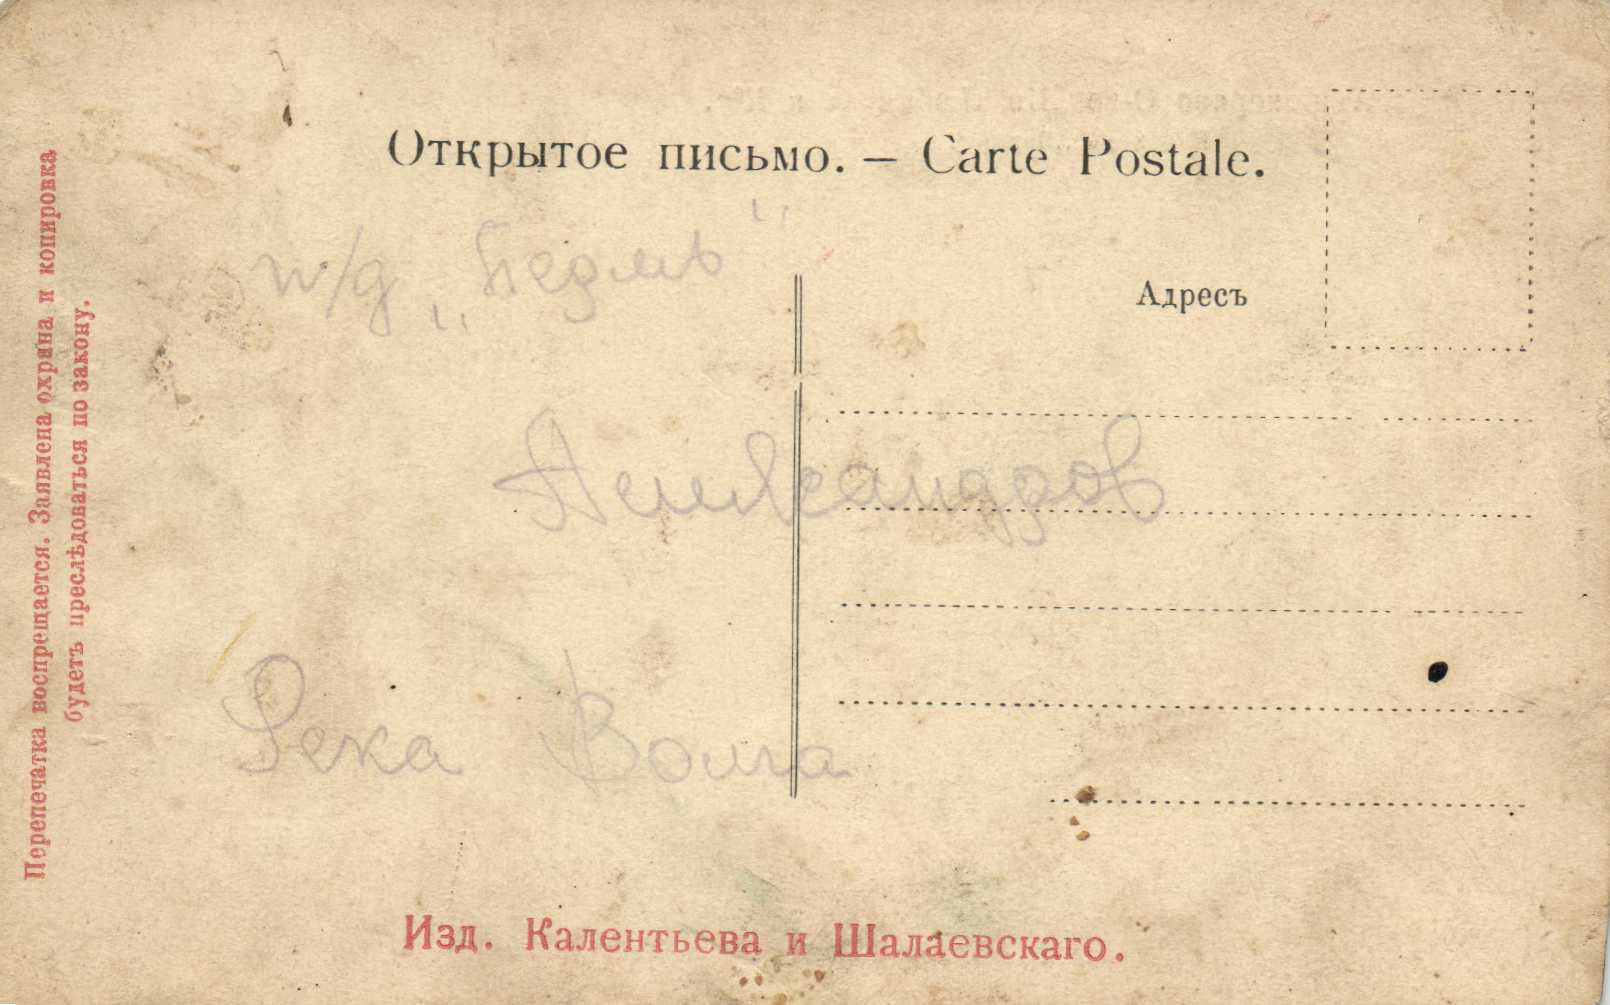 Открытое письмо. — Carte Postale.
п/д „
Адресъ
Александров
Река Волга
Изд. Калентьева и Шалаевскаго.
Перепечатка воспрещается. Заявлена охрана и копировка
будетъ преслѣдоваться по закону.